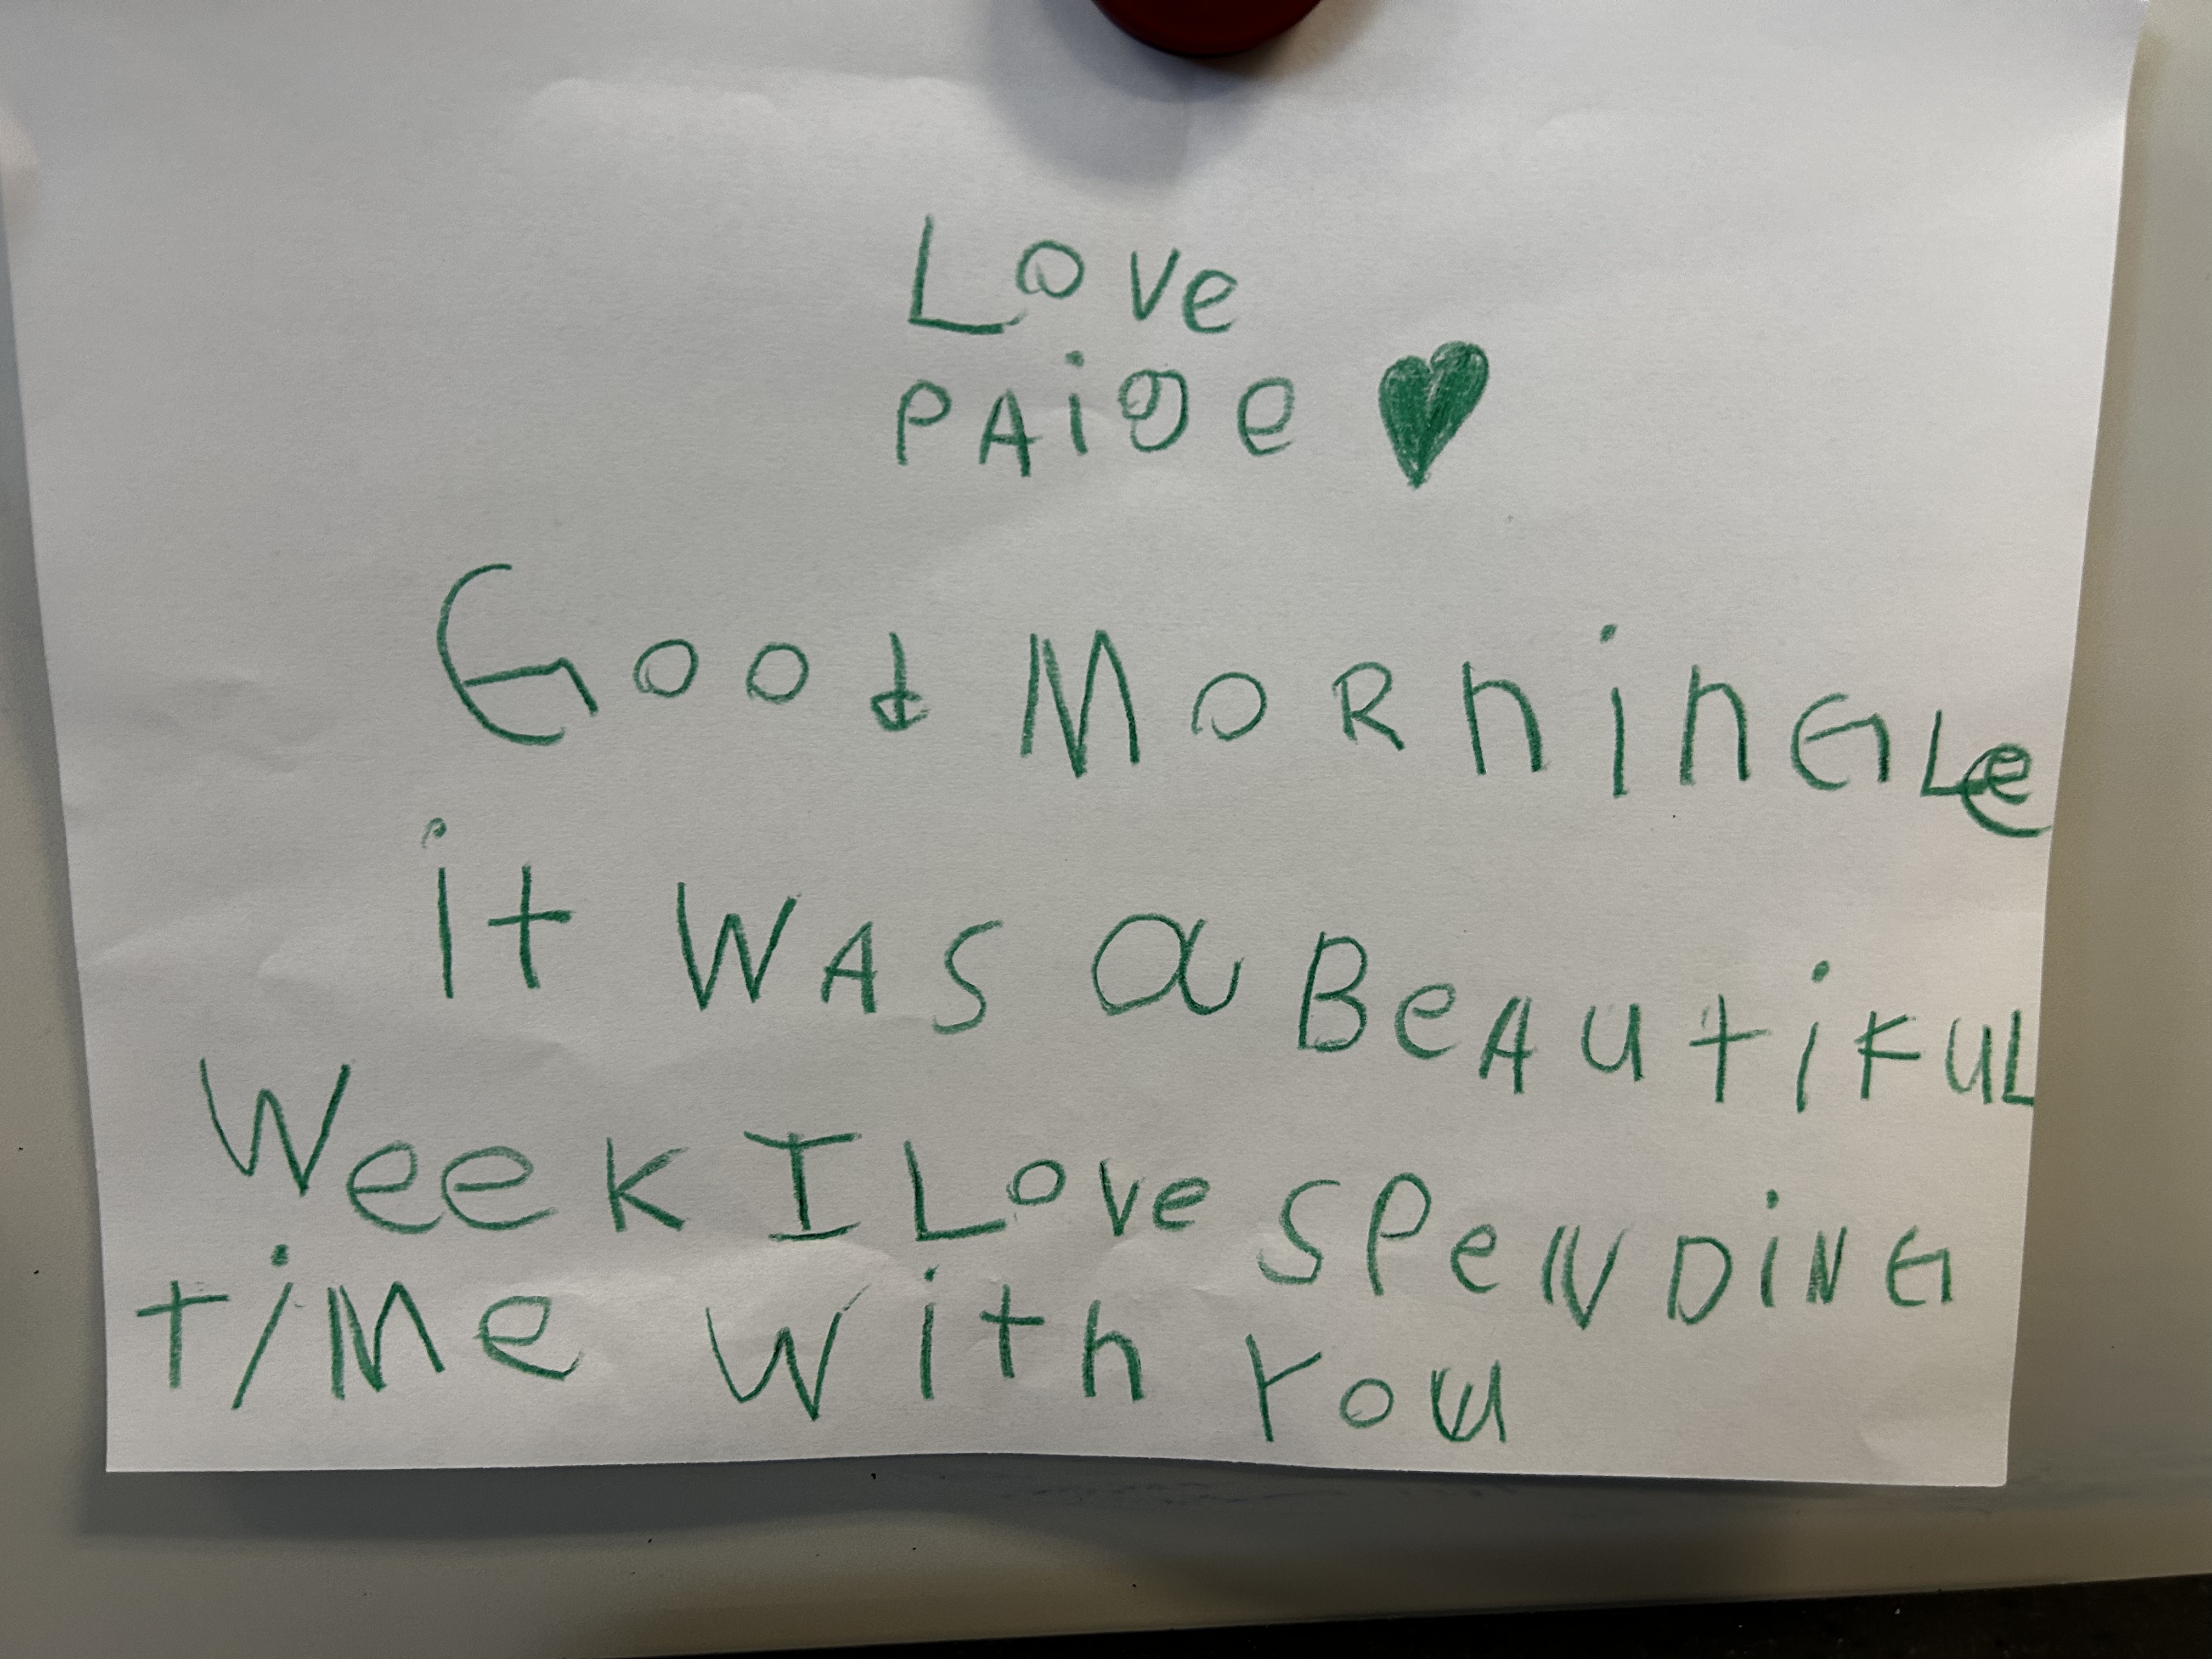 Love
PAige
Good MoRninG Lee
it WAS a BeAutiFuL
Week I Love SPeNDiNG
tiMe With You